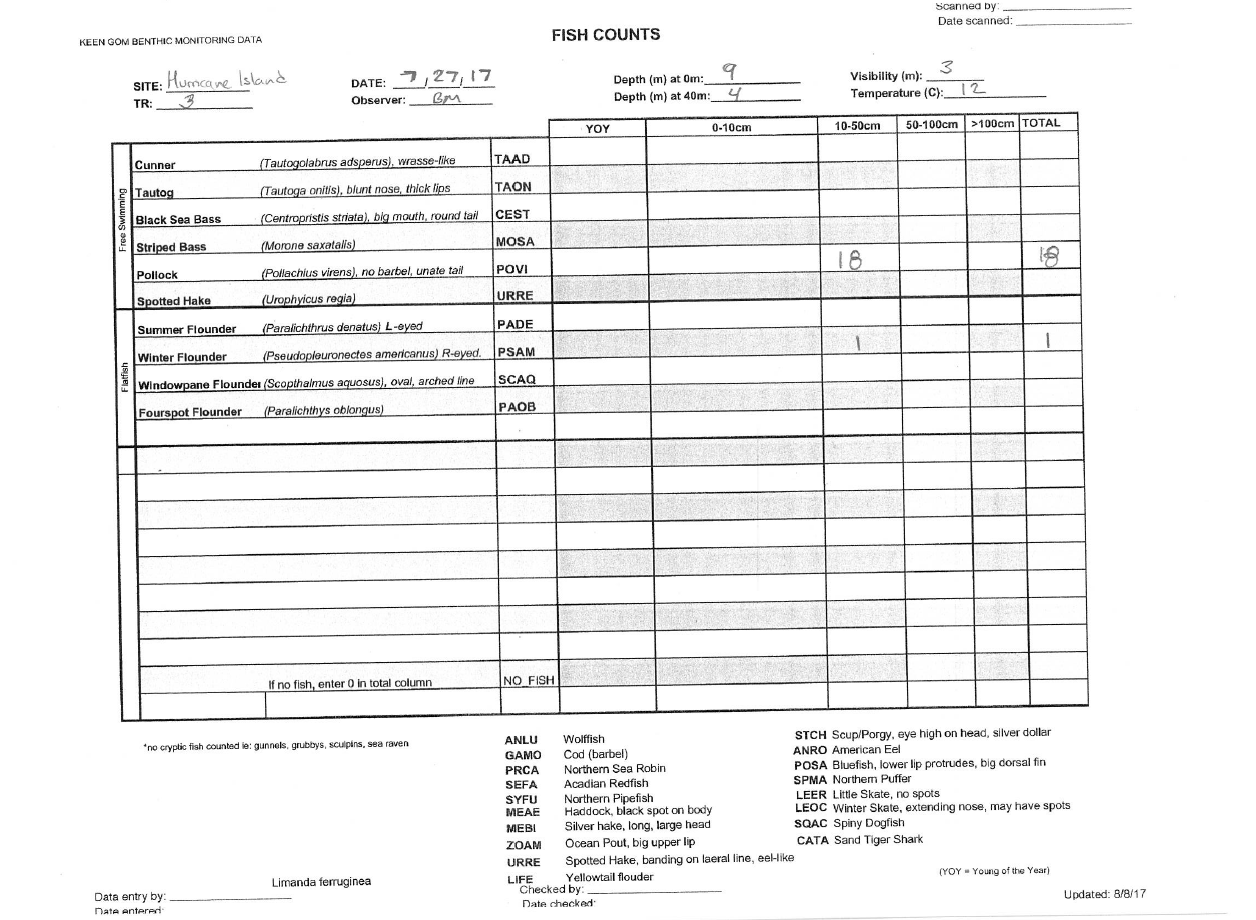 Scanned by:
Date scanned:
KEEN GOM BENTHIC MONITORING DATA
FISH COUNTS
SITE: Hurricane Island DATE: 7/27/17 Depth (m) at 0m: 9 Visibility (m): 3
TR: 3 Observer: BM Depth (m) at 40m: 4 Temperature (C): 12
YOY 0-10cm 10-50cm 50-100cm >100cm TOTAL
Free Swimming
Cunner (Tautogolabrus adsperus), wrasse-like TAAD
Tautog (Tautoga onitis), blunt nose, thick lips TAON
Black Sea Bass (Centropristis striata), big mouth, round tail CEST
Striped Bass (Morone saxatalis) MOSA
Pollock (Pollachius virens), no barbel, unate tail POVI 18 18
Spotted Hake (Urophyicus regia) URRE
Flatfish
Summer Flounder (Paralichthrus denatus) L-eyed PADE
Winter Flounder (Pseudopleuronectes americanus) R-eyed. PSAM 1 1
Windowpane Flounder (Scopthalmus aquosus), oval, arched line SCAQ
Fourspot Flounder (Paralichthys oblongus) PAOB
If no fish, enter 0 in total column NO_FISH
*no cryptic fish counted ie: gunnels, grubbys, sculpins, sea raven
ANLU Wolffish
GAMO Cod (barbel)
PRCA Northern Sea Robin
SEFA Acadian Redfish
SYFU Northern Pipefish
MEAE Haddock, black spot on body
MEBI Silver hake, long, large head
ZOAM Ocean Pout, big upper lip
URRE Spotted Hake, banding on laeral line, eel-like
LIFE Yellowtail flouder
STCH Scup/Porgy, eye high on head, silver dollar
ANRO American Eel
POSA Bluefish, lower lip protrudes, big dorsal fin
SPMA Northern Puffer
LEER Little Skate, no spots
LEOC Winter Skate, extending nose, may have spots
SQAC Spiny Dogfish
CATA Sand Tiger Shark
(YOY = Young of the Year)
Limanda ferruginea
Data entry by: Checked by: Updated: 8/8/17
Date entered: Date checked: